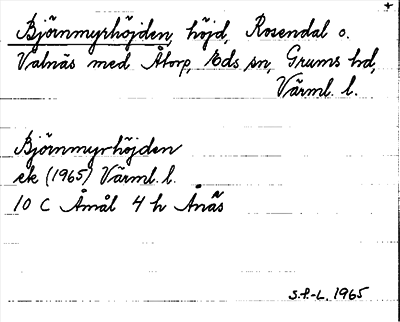 Björnmyrhöjden, höjd, Rosendal o.
Valnäs med Åtorp, Eds sn, Grums hd,
Värml. l.
Björnmyrhöjden
ek (1965) Värml. l.
10 C Åmål 4 h Ånäs
S.F.-L. 1965